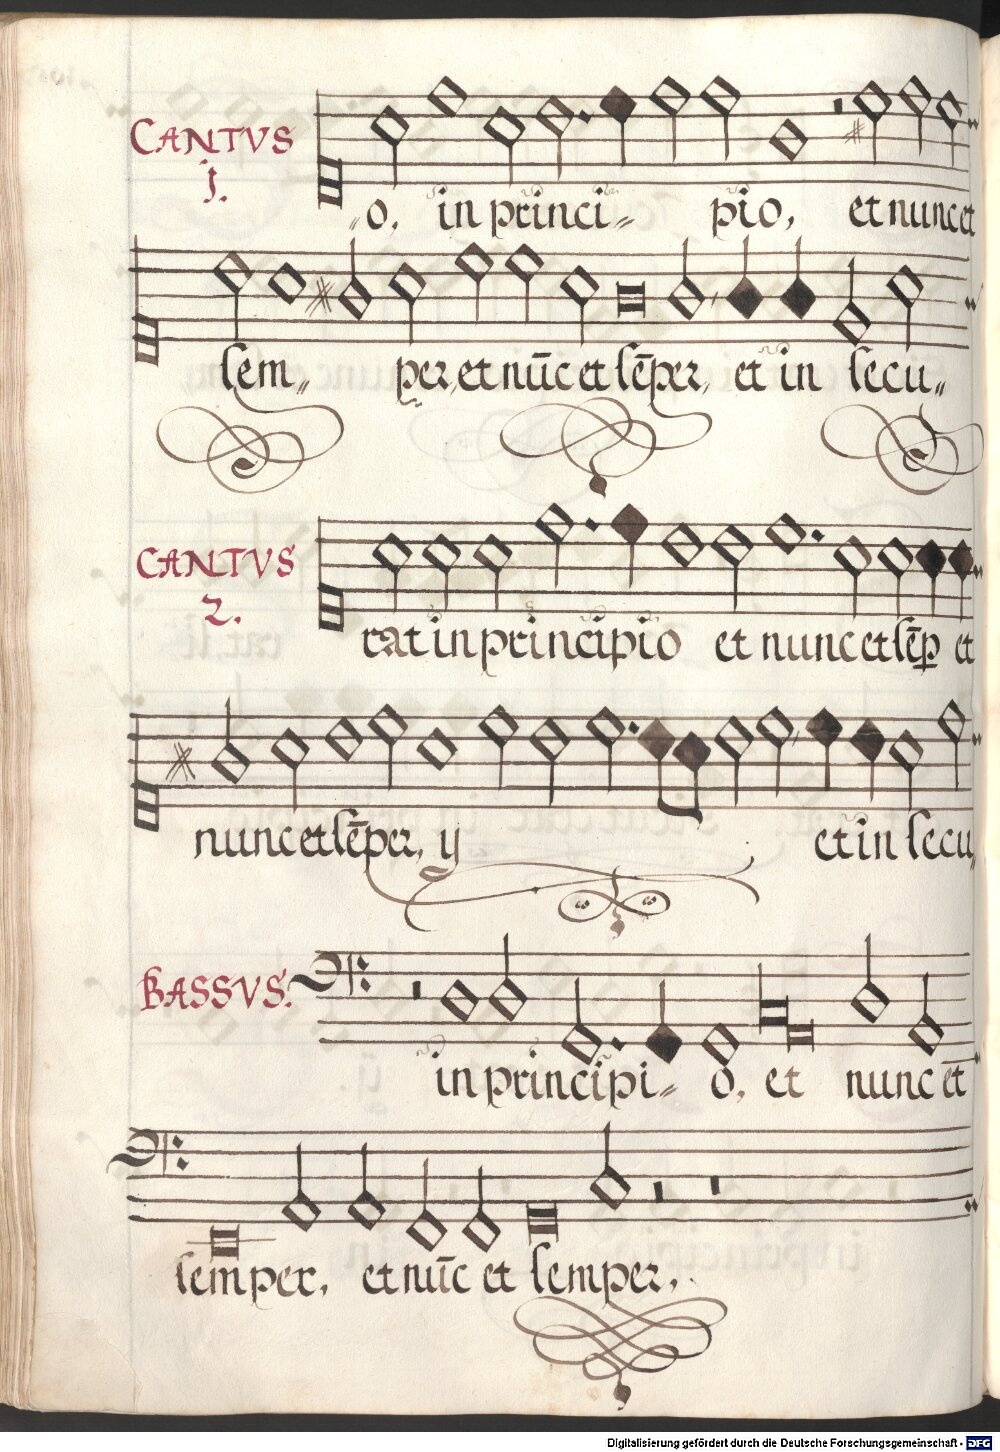 CANTVS
1.
o, in princi- pio, et nunc et
sem- per, et nūc et sēper, et in secu-
CANTVS
2.
rat in principio et nunc et sēp et
nunc et sēper, ij et in secu
BASSVS.
in principi- o, et nunc et
semper, et nūc et semper,
Digitalisierung gefördert durch die Deutsche Forschungsgemeinschaft - DFG